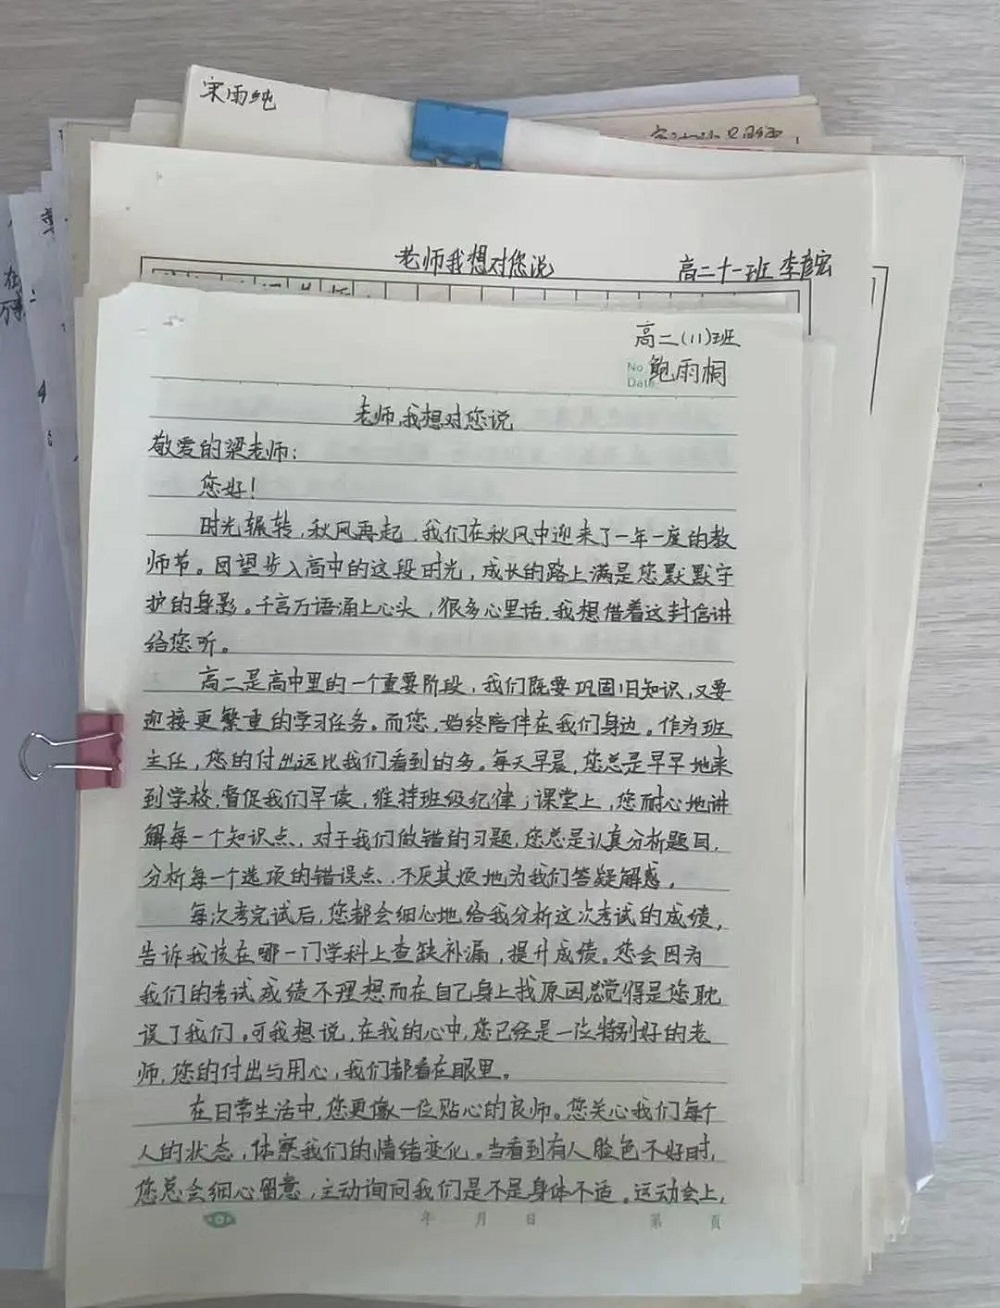 宋雨纯
老师我想对您说
高二十一班 李彦宏
高二(11)班
No.
鲍雨桐
Date
老师,我想对您说
敬爱的梁老师:
您好!
时光辗转,秋风再起,我们在秋风中迎来了一年一度的教
师节。回望步入高中的这段时光,成长的路上满是您默默守
护的身影。千言万语涌上心头,很多心里话,我想借着这封信讲
给您听。
高二是高中里的一个重要阶段,我们既要巩固旧知识,又要
迎接更繁重的学习任务。而您,始终陪伴在我们身边。作为班
主任,您的付出远比我们看到的多。每天早晨,您总是早早地来
到学校,督促我们早读,维持班级纪律;课堂上,您耐心地讲
解每一个知识点、对于我们做错的习题,您总是认真分析题目,
分析每一个选项的错误点、不厌其烦地为我们答疑解惑。
每次考完试后,您都会细心地给我分析这次考试的成绩,
告诉我该在哪一门学科上查缺补漏,提升成绩。您会因为
我们的考试成绩不理想而在自己身上找原因,总觉得是您耽
误了我们。可我想说,在我的心中,您已经是一位特别好的老
师,您的付出与用心,我们都看在眼里。
在日常生活中,您更像一位贴心的良师。您关心我们每个
人的状态,体察我们的情绪变化。当看到有人脸色不好时,
您总会细心留意,主动询问我们是不是身体不适。运动会上,
年 月 日 第 页